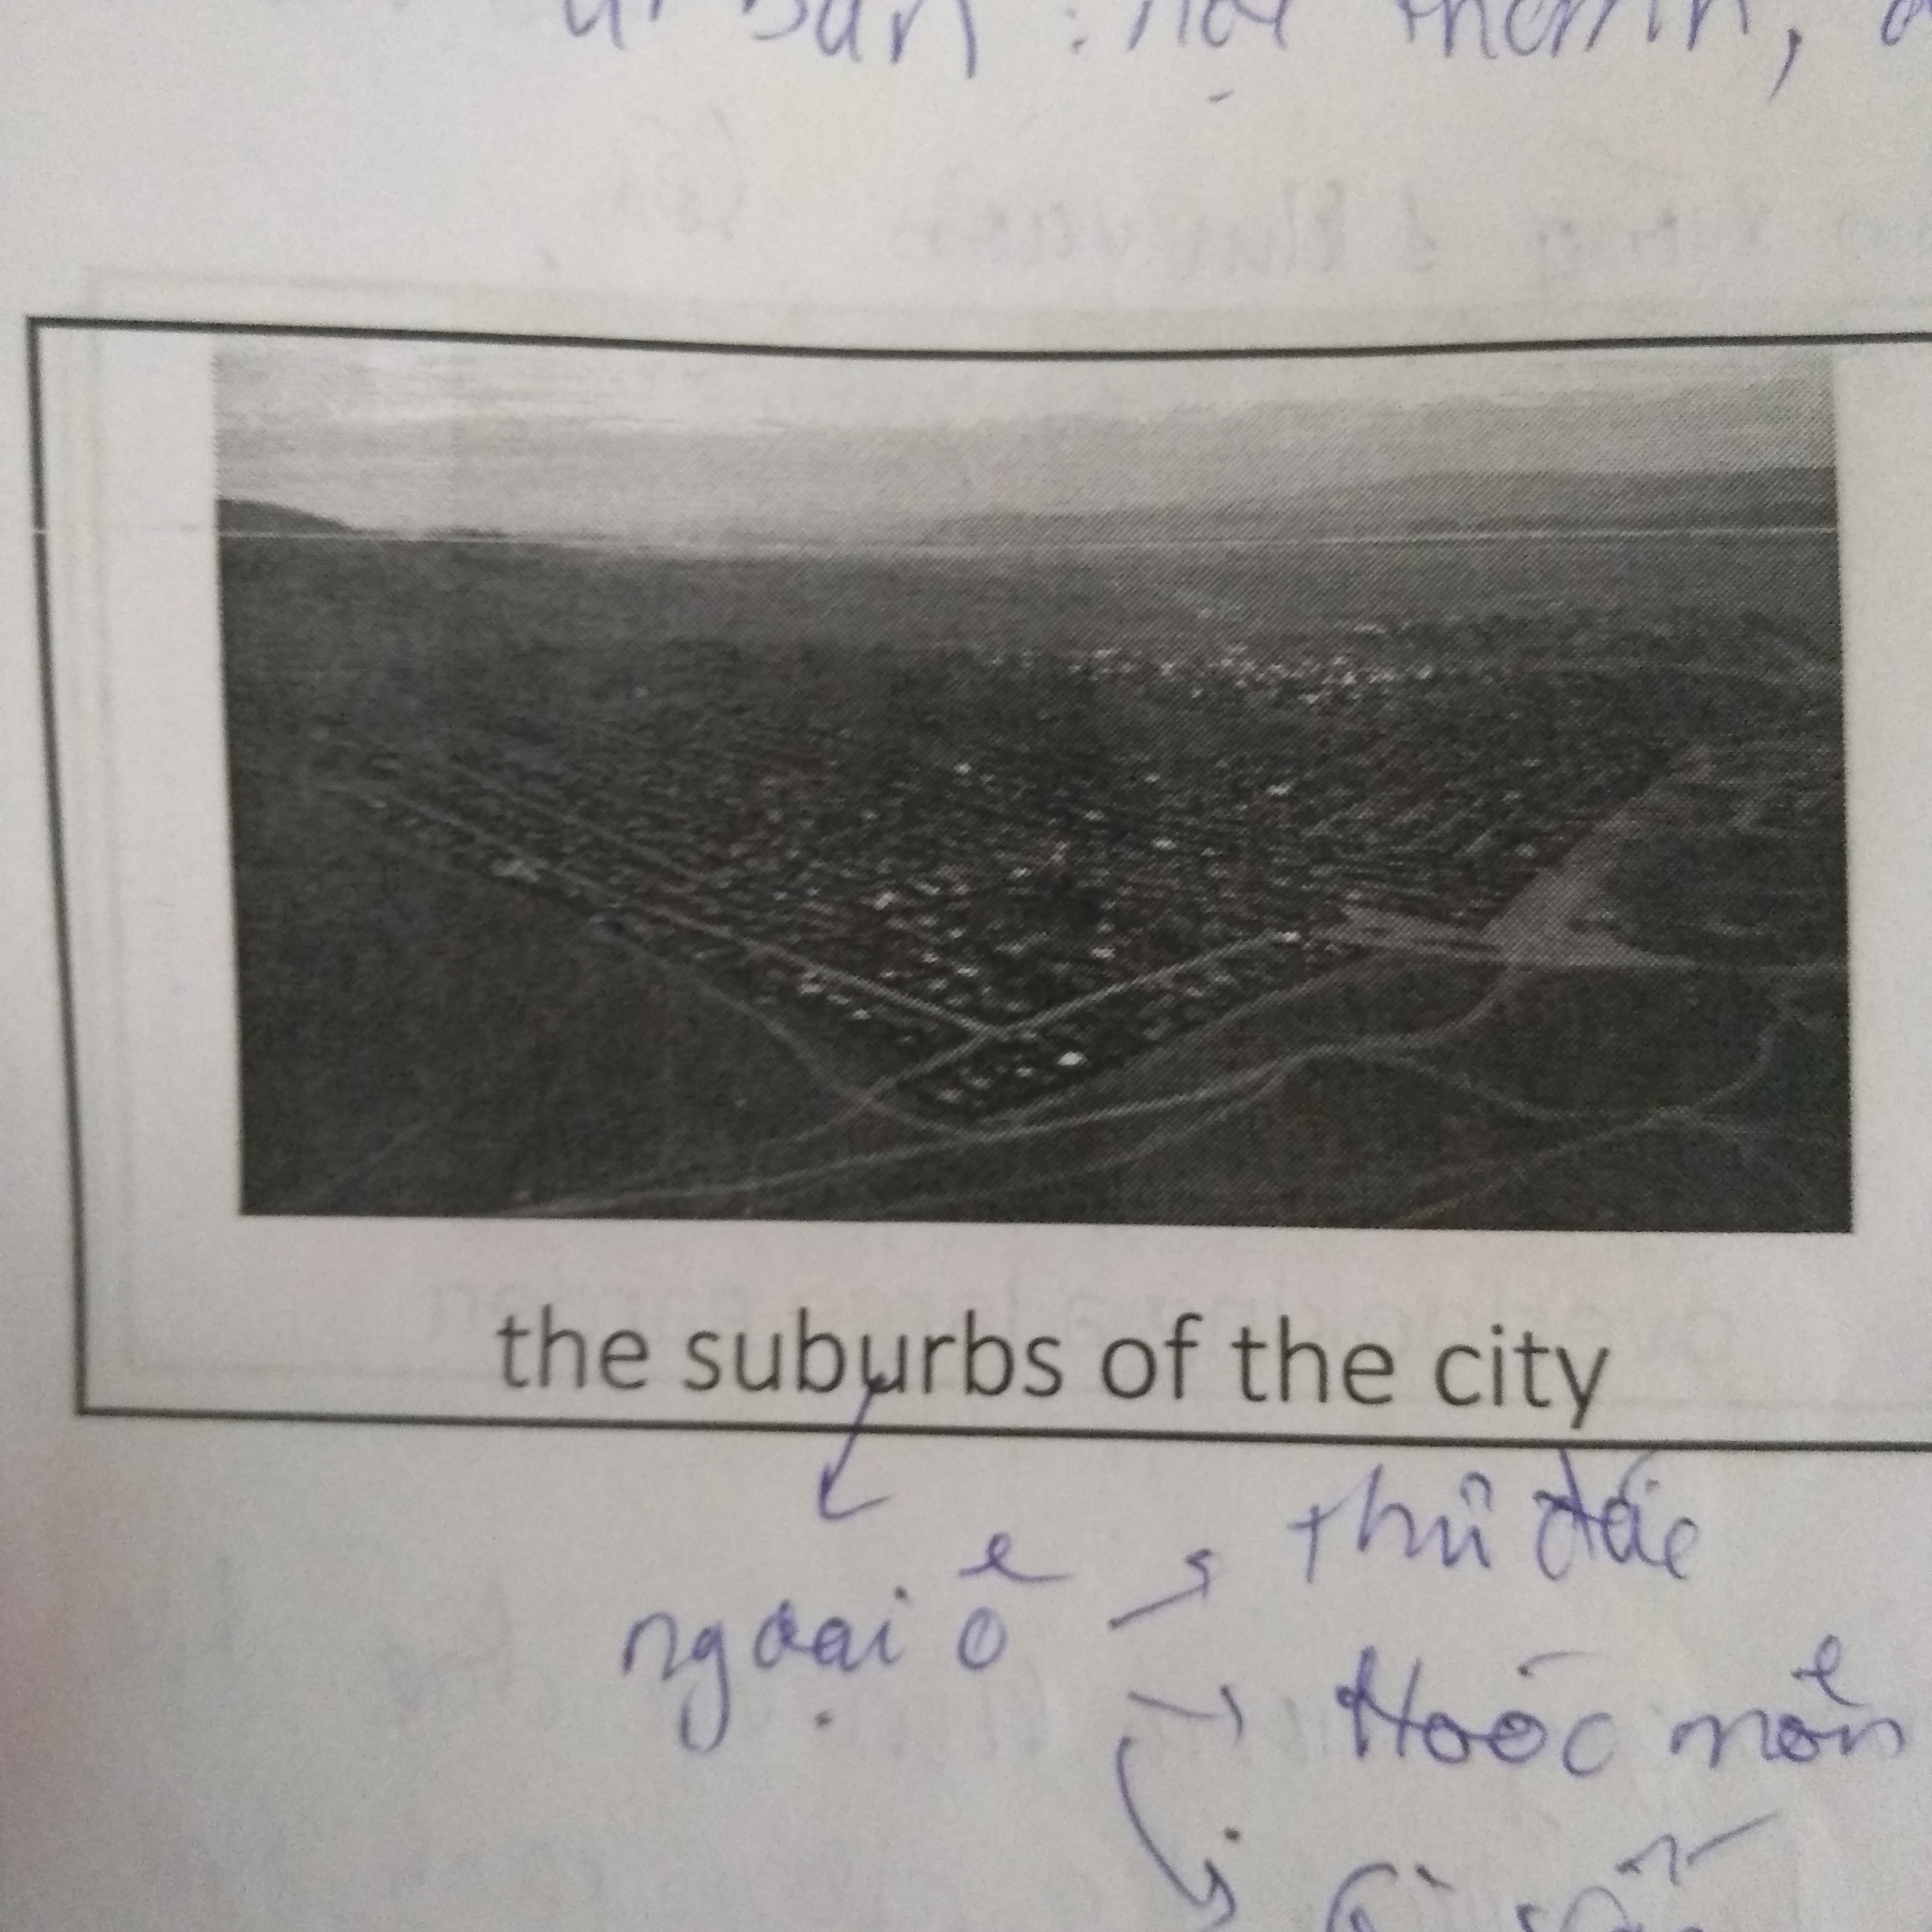 urban : nội thành,
the suburbs of the city
ngoại ô → Thủ đức
→ Hoóc môn